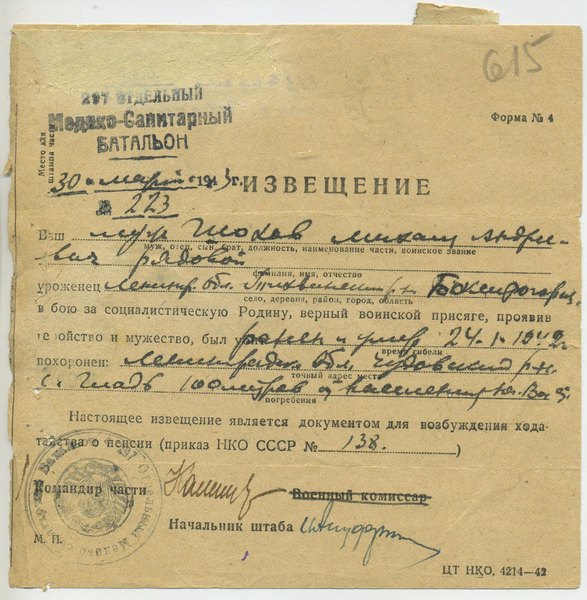 615
297 ОТДЕЛЬНЫЙ
Медико-Санитарный
БАТАЛЬОН
Форма № 4
Место для
штампа части
30 " март 194 г.
ИЗВЕЩЕНИЕ
№ 223
Ваш муж Михаил Андре-
муж, отец, сын, брат, должность, наименование части, воинское звание
евич рядовой
фамилия, имя, отчество
уроженец Ленингр. обл. Тихвинский р-н
село, деревня, район, город, область
в бою за социалистическую Родину, верный воинской присяге, проявив
геройство и мужество, был ранен и умер 24.1.1942 г.
время гибели
похоронен: Ленинградск. обл. Чудовский р-н.
точный адрес места
с. Гладь
погребения
Настоящее извещение является документом для возбуждения хода-
тайства о пенсии (приказ НКО СССР № 138. )
Командир части
Военный комиссар
Начальник штаба
М. П.
ЦТ НКО. 4214—42